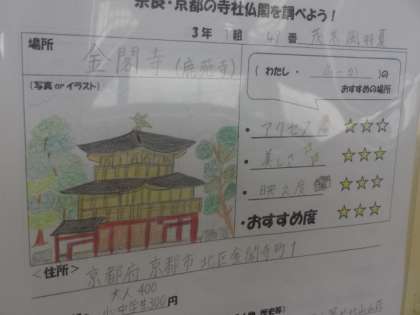 奈良・京都の寺社仏閣を調べよう！
3年 1組 41番
場所
金閣寺(鹿苑寺)
(写真orイラスト)
( わたし・ )の
おすすめの場所
・アクセス ☆☆☆
・美しさ ☆☆☆
・映え度 ☆☆☆
・おすすめ度 ☆☆☆
＜住所＞
京都府 京都市 北区金閣寺町1
大人 400
小中学生300円